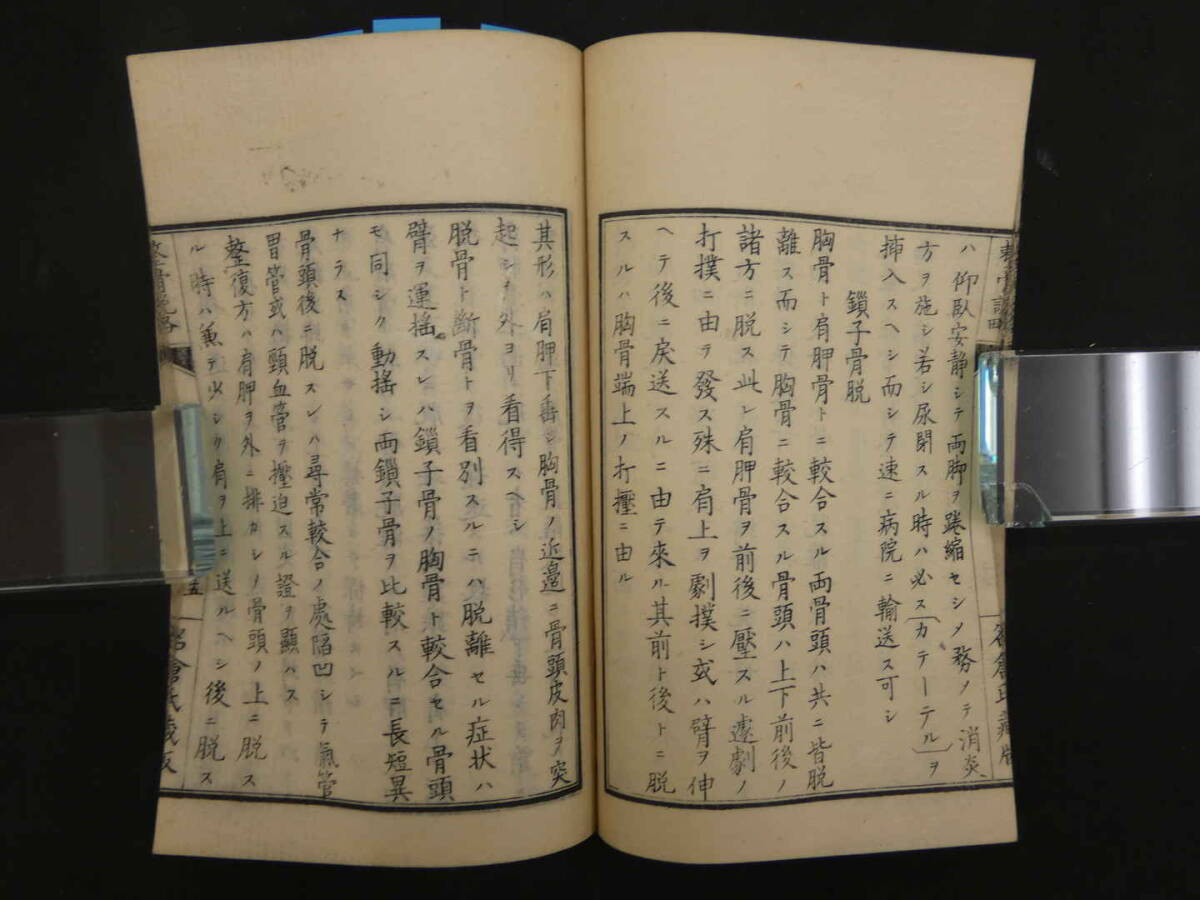 ハ仰臥安静シテ両脚ヲ踡縮セシメ務メテ消炎
方ヲ施シ若シ尿閉スル時ハ必ス〔カテーテル〕ヲ
挿入スヘシ而シテ速ニ病院ニ輸送ス可シ
鎖子骨脱
胸骨ト肩胛骨トニ較合スル両骨頭ハ共ニ皆脱
離ス而シテ胸骨ニ較合スル骨頭ハ上下前後ノ
諸方ニ脱ス此レ肩胛骨ヲ前後ニ壓スル遽劇ノ
打撲ニ由テ發ス殊ニ肩上ヲ劇撲シ或ハ臂ヲ伸
ヘテ後ニ戻送スルニ由テ來ル其前ト後トニ脱
スルハ胸骨端上ノ打壓ニ由ル
其形ハ肩胛下垂シ胸骨ノ近邊ニ骨頭皮肉ヲ突
起シテ外ヨリ看得スヘシ
脱骨ト斷骨トヲ看別スルニハ脱離セル症状ハ
臂ヲ運揺スレハ鎖子骨ノ胸骨ト較合セル骨頭
モ同シク動揺シ両鎖子骨ヲ比較スルニ長短異
ナラス
骨頭後ニ脱スレハ尋常較合ノ處陷凹シテ氣管
胃管或ハ頸血管ヲ壓迫スル證ヲ顯ハス
整復方ハ肩胛ヲ外ニ排カシメ骨頭ノ上ニ脱ス
ル時ハ兼テ少シク肩ヲ上ニ送ルヘシ後ニ脱ス
整骨説略
五
倉氏蔵版